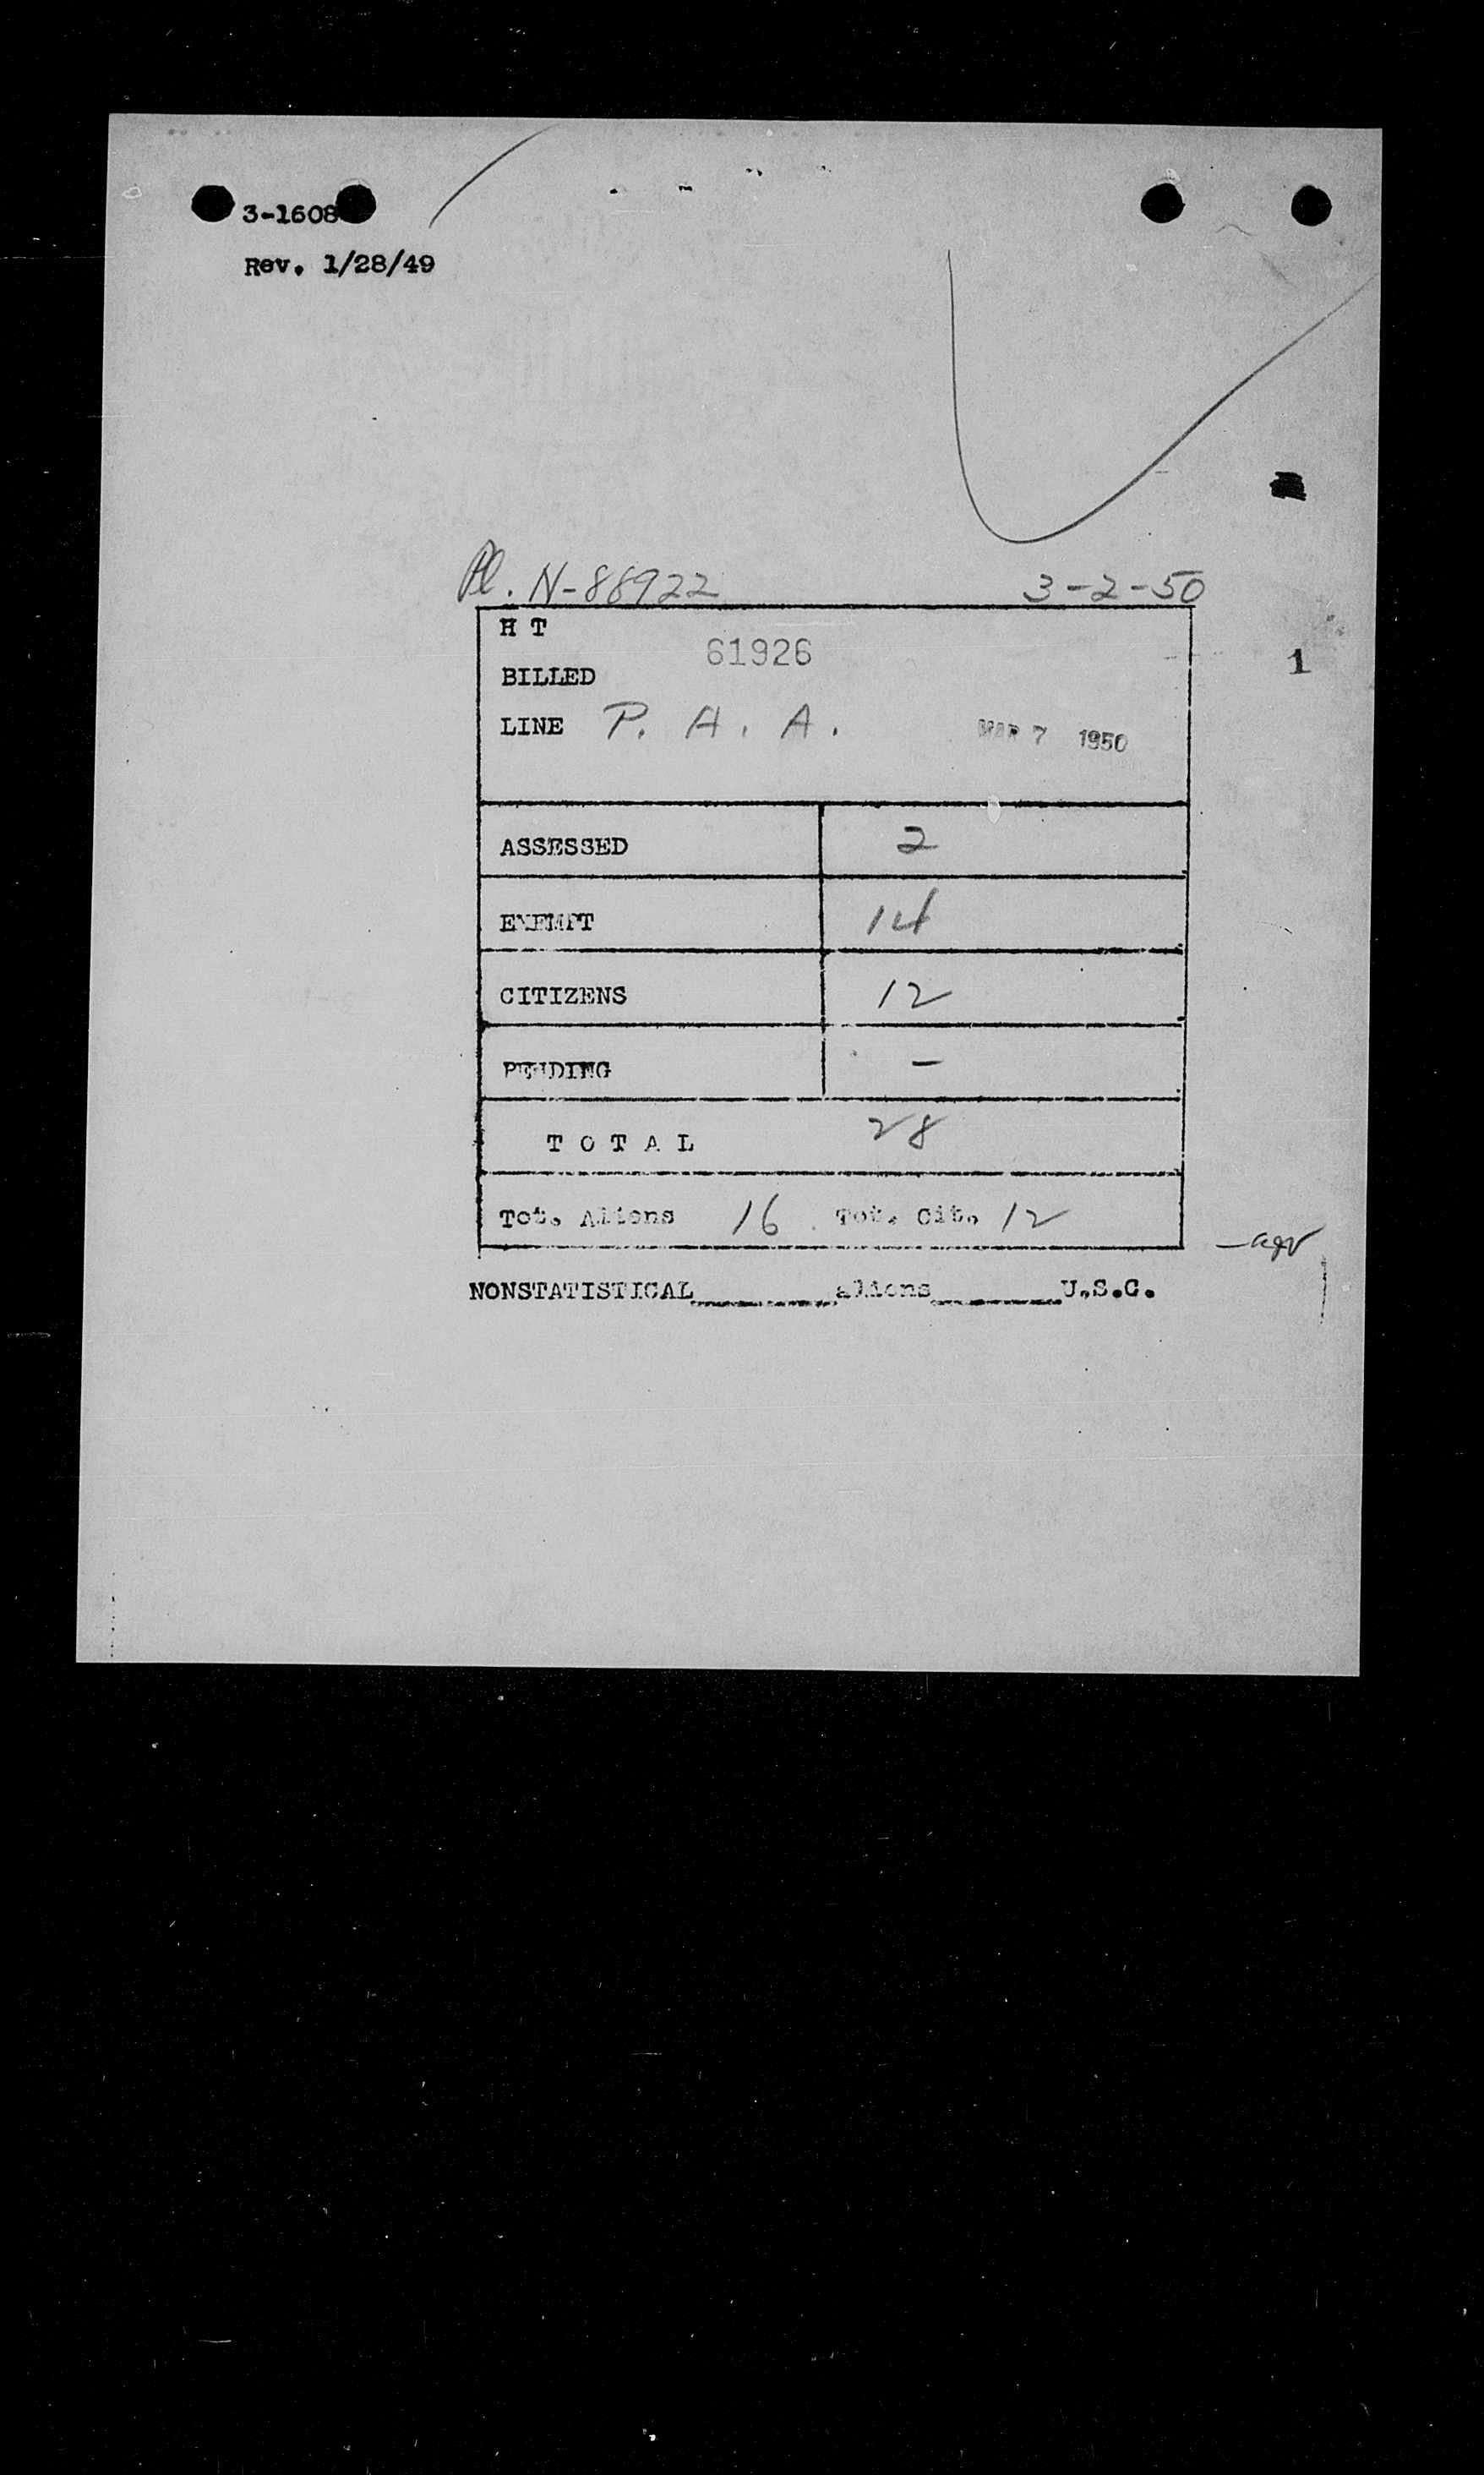 3-1608
Rev. 1/28/49
Pl. N-88922 3-2-50
H T
61926
BILLED
LINE P. A. A. MAR 7 1950
1
ASSESSED 2
EXEMPT 14
CITIZENS 12
PENDING -
T O T A L 28
Tot. Aliens 16 Tot. Cit. 12
NONSTATISTICAL aliens U.S.C.